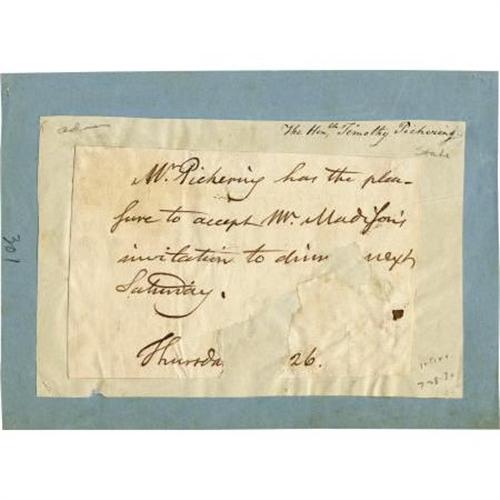 The Hon. Timothy Pickering
State
Mr. Pickering has the plea-
sure to accept Mr. Madison's
invitation to dine next
Saturday.
Thursda 26.
301